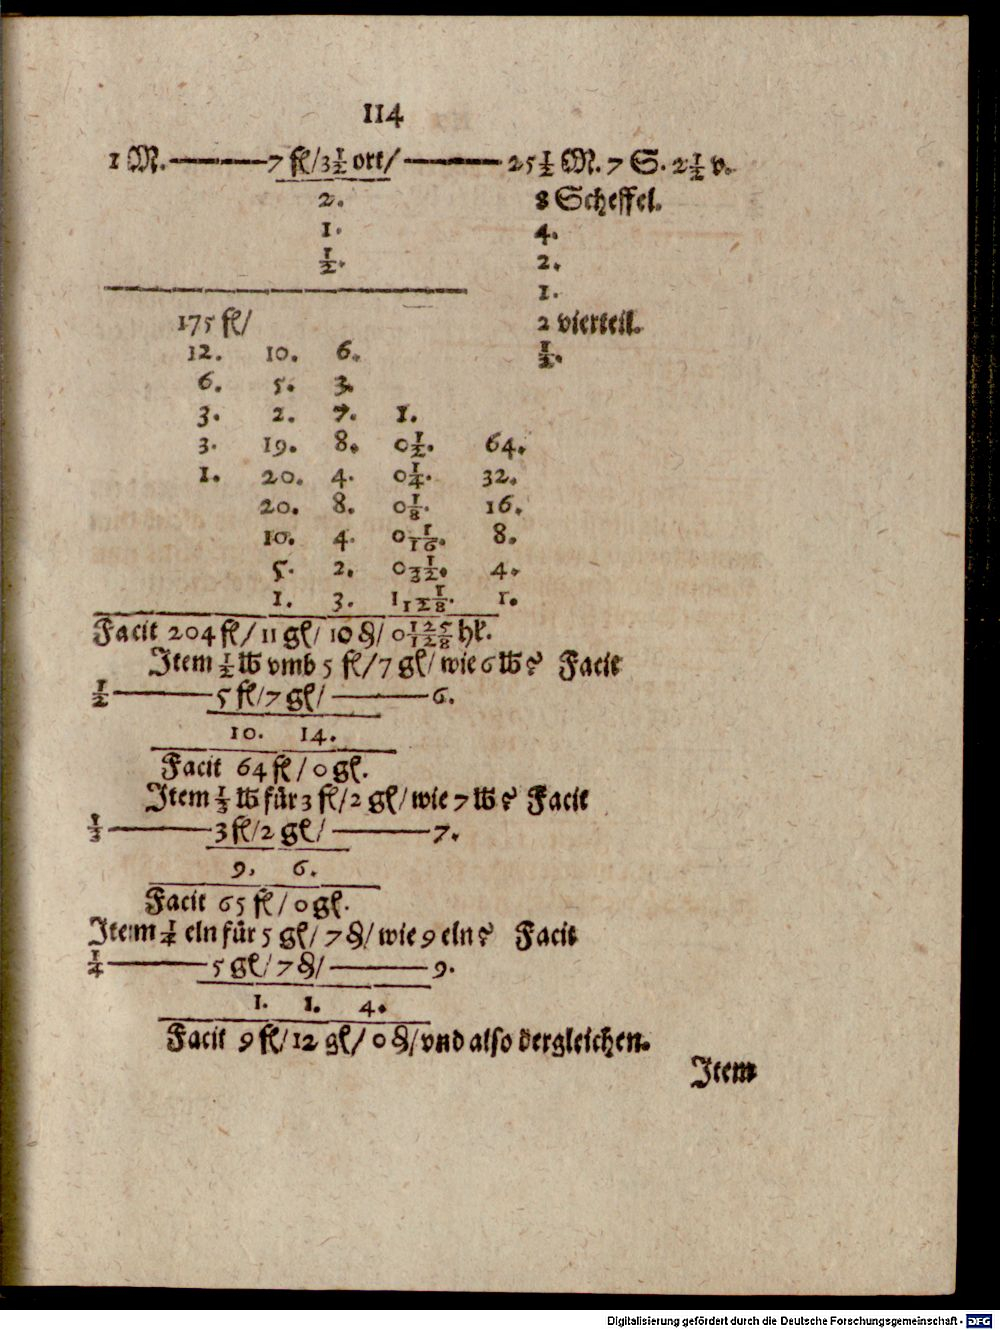 114
1 M. — 7 fl/3 1/2 ort/ — 25 1/2 M. 7 S. 2 1/2 v.
2. 8 Scheffel.
1. 4.
1/2. 2.
1.
175 fl/ 2 vierteil.
12. 10. 6. 1/2.
6. 5. 3.
3. 2. 7. 1.
3. 19. 8. 0 1/2. 64.
1. 20. 4. 0 1/4. 32.
20. 8. 0 1/8. 16.
10. 4. 0 1/16. 8.
5. 2. 0 1/32. 4.
1. 3. 1 1/128. 1.
Facit 204 fl/ 11 gl/ 10 ₰/ 0 125/128 hl.
Item 1/2 ℔ vmb 5 fl/ 7 gl/ wie 6 ℔? Facit
1/2 — 5 fl/7 gl/ — 6.
10. 14.
Facit 64 fl/ 0 gl.
Item 1/3 ℔ für 3 fl/ 2 gl/ wie 7 ℔? Facit
1/3 — 3 fl/2 gl/ — 7.
9. 6.
Facit 65 fl/ 0 gl.
Item 1/4 eln für 5 gl/ 7 ₰/ wie 9 eln? Facit
1/4 — 5 gl/ 7 ₰/ — 9.
1. 1. 4.
Facit 9 fl/ 12 gl/ 0 ₰/ vnd also dergleichen.
Item
Digitalisierung gefördert durch die Deutsche Forschungsgemeinschaft - DFG